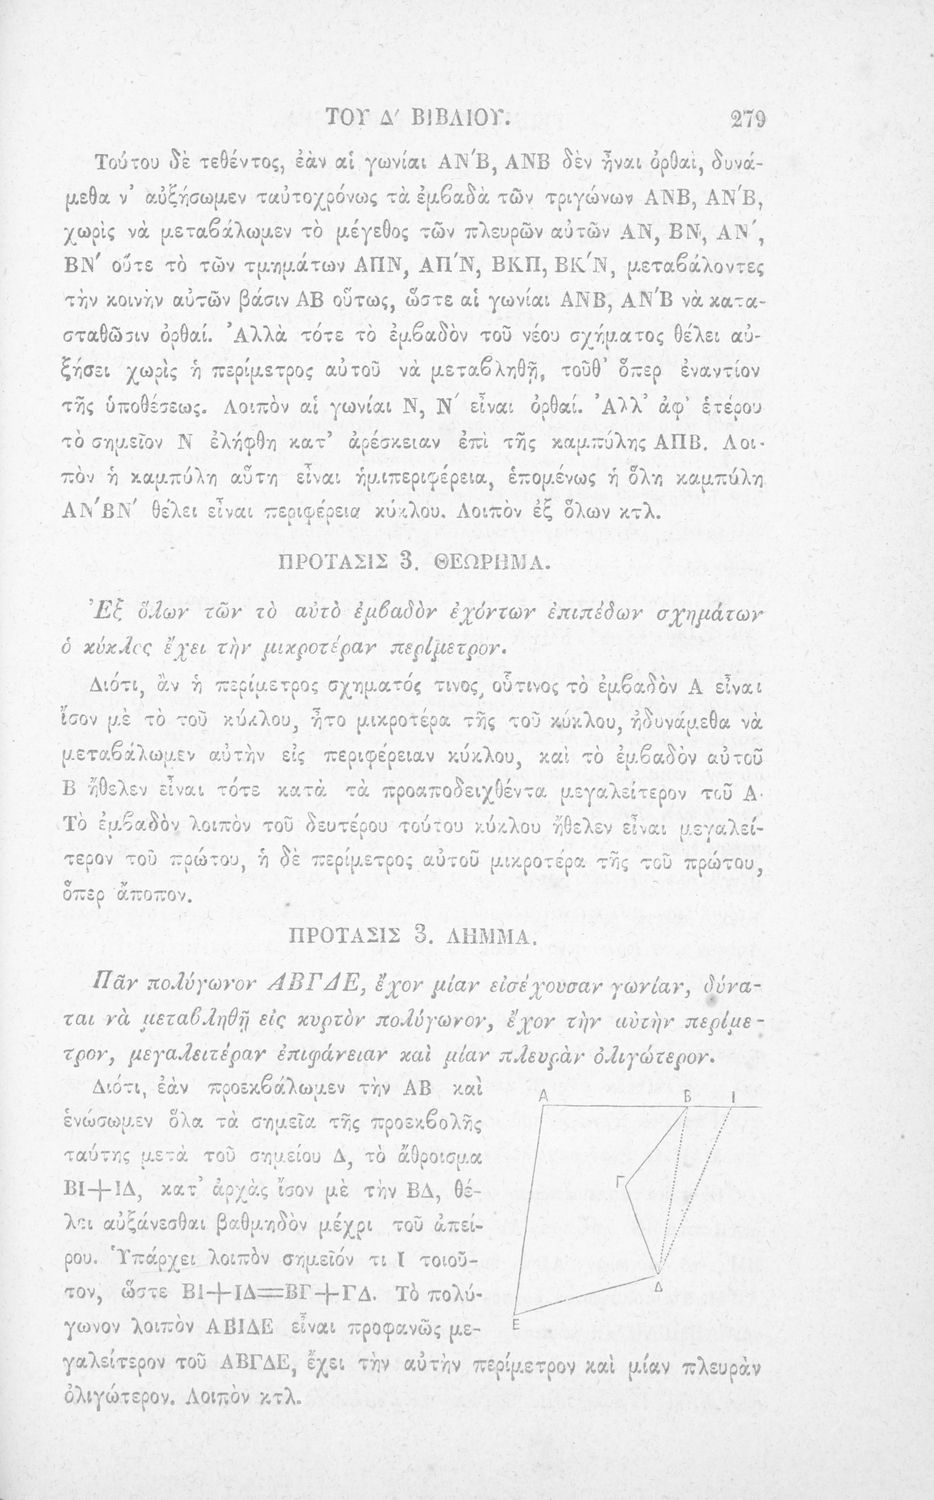 ΤΟΥ Δ′ ΒΙΒΛΙΟΥ. 279
Τούτου δὲ τεθέντος, ἐὰν αἱ γωνίαι ΑΝ′Β, ΑΝΒ δὲν ἦναι ὀρθαὶ, δυνά-
μεθα ν’ αὐξήσωμεν ταὐτοχρόνως τὰ ἐμβαδὰ τῶν τριγώνων ΑΝΒ, ΑΝ′Β,
χωρὶς νὰ μεταβάλωμεν τὸ μέγεθος τῶν πλευρῶν αὐτῶν ΑΝ, ΒΝ, ΑΝ′,
ΒΝ′ οὔτε τὸ τῶν τμημάτων ΑΠΝ, ΑΠ′Ν, ΒΚΠ, ΒΚ′Ν, μεταβάλοντες
τὴν κοινὴν αὐτῶν βάσιν ΑΒ οὕτως, ὥστε αἱ γωνίαι ΑΝΒ, ΑΝ′Β νὰ κατα-
σταθῶσιν ὀρθαί. Ἀλλὰ τότε τὸ ἐμβαδὸν τοῦ νέου σχήματος θέλει αὐ-
ξήσει χωρὶς ἡ περίμετρος αὐτοῦ νὰ μεταβληθῇ, τοῦθ’ ὅπερ ἐναντίον
τῆς ὑποθέσεως. Λοιπὸν αἱ γωνίαι Ν, Ν′ εἶναι ὀρθαί. Ἀλλ’ ἀφ’ ἑτέρου
τὸ σημεῖον Ν ἐλήφθη κατ’ ἀρέσκειαν ἐπὶ τῆς καμπύλης ΑΠΒ. Λοι-
πὸν ἡ καμπύλη αὕτη εἶναι ἡμιπεριφέρεια, ἑπομένως ἡ ὅλη καμπύλη
ΑΝ′ΒΝ′ θέλει εἶναι περιφέρεια κύκλου. Λοιπὸν ἐξ ὅλων κτλ.
ΠΡΟΤΑΣΙΣ 3. ΘΕΩΡΗΜΑ.
Ἐξ ὅλων τῶν τὸ αὐτὸ ἐμβαδὸν ἐχόντων ἐπιπέδων σχημάτων
ὁ κύκλος ἔχει τὴν μικροτέραν περίμετρον.
Διότι, ἂν ἡ περίμετρος σχηματός τινος, οὗτινος τὸ ἐμβαδὸν Α εἶναι
ἴσον μὲ τὸ τοῦ κύκλου, ἦτο μικροτέρα τῆς τοῦ κύκλου, ἠδυνάμεθα νὰ
μεταβάλωμεν αὐτὴν εἰς περιφέρειαν κύκλου, καὶ τὸ ἐμβαδὸν αὐτοῦ
Β ἤθελεν εἶναι τότε κατὰ τὰ προαποδειχθέντα μεγαλείτερον τοῦ Α·
Τὸ ἐμβαδὸν λοιπὸν τοῦ δευτέρου τούτου κύκλου ἤθελεν εἶναι μεγαλεί-
τερον τοῦ πρώτου, ἡ δὲ περίμετρος αὐτοῦ μικροτέρα τῆς τοῦ πρώτου,
ὅπερ ἄποπον.
ΠΡΟΤΑΣΙΣ 3. ΛΗΜΜΑ.
Πᾶν πολύγωνον ΑΒΓΔΕ, ἔχον μίαν εἰσέχουσαν γωνίαν, δύνα-
ται νὰ μεταβληθῇ εἰς κυρτὸν πολύγωνον, ἔχον τὴν αὐτὴν περίμε-
τρον, μεγαλειτέραν ἐπιφάνειαν καὶ μίαν πλευρὰν ὀλιγώτερον.
Διότι, ἐὰν προεκβάλωμεν τὴν ΑΒ καὶ
ἑνώσωμεν ὅλα τὰ σημεῖα τῆς προεκβολῆς
ταύτης μετὰ τοῦ σημείου Δ, τὸ ἄθροισμα
ΒΙ+ΙΔ, κατ’ ἀρχὰς ἴσον μὲ τὴν ΒΔ, θέ-
λει αὐξάνεσθαι βαθμηδὸν μέχρι τοῦ ἀπεί-
ρου. Ὑπάρχει λοιπὸν σημεῖόν τι Ι τοιοῦ-
τον, ὥστε ΒΙ+ΙΔ=ΒΓ+ΓΔ. Τὸ πολύ-
γωνον λοιπὸν ΑΒΙΔΕ εἶναι προφανῶς με-
γαλείτερον τοῦ ΑΒΓΔΕ, ἔχει τὴν αὐτὴν περίμετρον καὶ μίαν πλευρὰν
ὀλιγώτερον. Λοιπὸν κτλ.
Α Β Ι
Γ
Δ
Ε